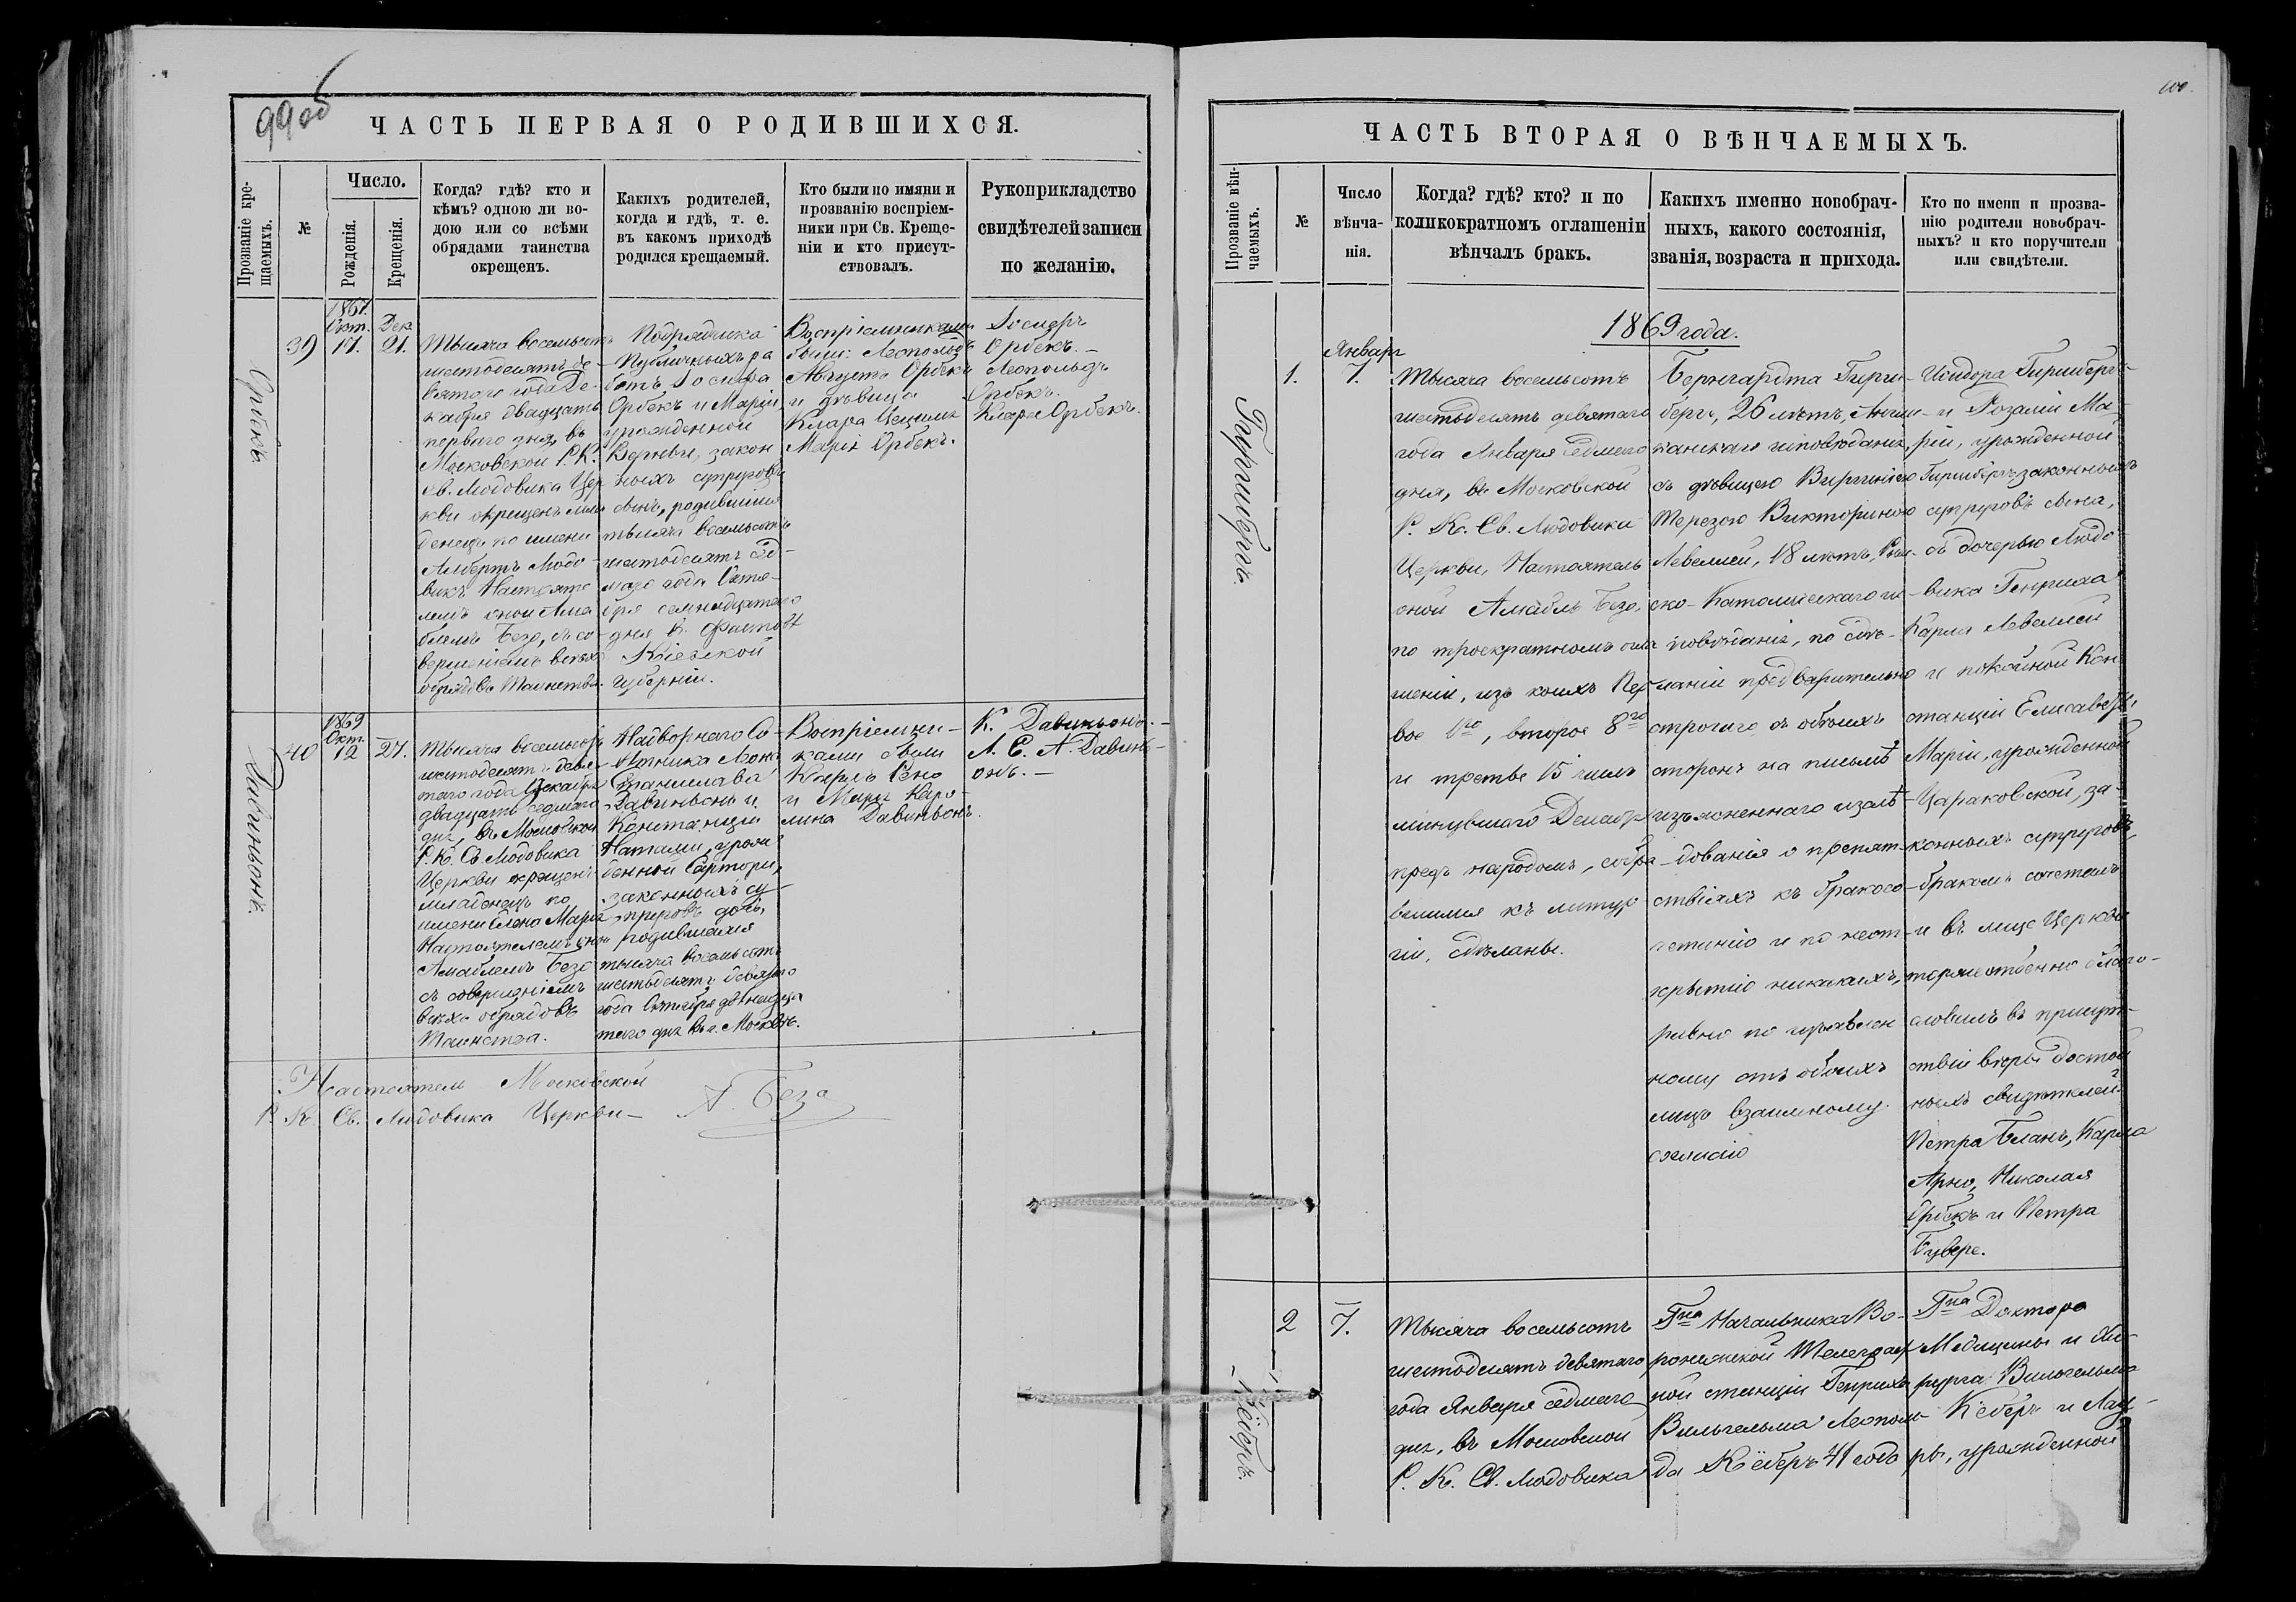 99об
ЧАСТЬ ПЕРВАЯ О РОДИВШИХСЯ.
Прозваніе кре-
щаемыхъ.
№
Число.
Рожденія.
Крещенія.
Когда? гдѣ? кто и
кѣмъ? одною ли во-
дою или со всѣми
обрядами таинства
окрещенъ.
Какихъ родителей,
когда и гдѣ, т. е.
въ какомъ приходѣ
родился крещаемый.
Кто были по имяни и
прозванію воспріем-
ники при Св. Креще-
ніи и кто присут-
ствовалъ.
Рукоприкладство
свидѣтелей записи
по желанію.
Орбекъ.
39
1867.
Окт.
17.
Дек.
21.
Тысяча восемьсотъ
шестьдесятъ де-
вятаго года Де-
кабря двадцать
перваго дня, въ
Московской Р. К.
св. Людовика Цер
кви окрещенъ мла
денецъ по имени
Альбертъ Людо-
викъ Настояте
лемъ оной Ама
блемъ Безо, съ со-
вершеніемъ всѣхъ
обрядовъ Таинства.
Подрядчика
Публичныхъ ра
ботъ Іосифа
Орбекъ и Маріи
урожденной
закон
ныхъ супруговъ
сынъ, родившійся
тысяча восемьсотъ
шестьдесятъ сед-
маго года Октя-
бря семнадцатаго
дня в. Фастовѣ
Кіевской
губерніи.
Воспріемниками
были: Леопольдъ
Августъ Орбекъ
и дѣвица
Клара Цецилія
Марія Орбекъ.
Іосифъ
Орбекъ. –
Леопольдъ
Орбекъ.
Клара Орбекъ.
Давиньонъ.
40
1869
Окт.
12
27.
Тысяча восемьсотъ
шестьдесятъ девя-
таго года Декабря
двадцать седмаго
дня, въ Московской
Р. К. Св. Людовика
Церкви окрещенъ
младенецъ по
имени Елена Марія
Настоятелемъ оной
Амаблемъ Безо
съ совершеніемъ
всѣхъ обрядовъ
Таинства.
Надворнаго Со-
вѣтника Леона
Станислава
Давиньонъ и
Констанціи
Наталіи, урож
денной Сартори,
законныхъ су-
пруговъ дочь,
родившаяся
тысяча восемьсотъ
шестьдесятъ девятаго
года Октября двѣнадца
таго дня въ г. Москвѣ.
Воспріемни-
ками были
Карлъ Рено
и Марія Каро-
лина Давиньонъ.
К. Давиньонъ. –
Л. С. А. Давинь-
онъ. –
Настоятель Московской
Р. К. Св. Людовика Церкви – А. Безо
100.
ЧАСТЬ ВТОРАЯ О ВѢНЧАЕМЫХЪ.
Прозваніе вѣн-
чаемыхъ.
№
Число
вѣнча-
нія.
Когда? гдѣ? кто? и по
коликократномъ оглашеніи
вѣнчалъ бракъ.
Какихъ именно новобрач-
ныхъ, какого состоянія,
званія, возраста и прихода.
Кто по имени и прозва-
нію родители новобрач-
ныхъ? и кто поручители
или свидѣтели.
1869 года.
Гиршбергъ.
1.
Январь
7.
Тысяча восемьсотъ
шестьдесятъ девятаго
года Января седмаго
дня, въ Московской
Р. К. Св. Людовика
Церкви, Настоятель
оной Амабль Безо,
по троекратномъ огла
шеніи, изъ коихъ пер
вое 1го, второе 8го
и третье 15 числъ
минувшаго Декабря
предъ народомъ, собра-
вшимся къ литур
гіи, сдѣланы.
Бернгардта Гирш-
бергъ, 26 лѣтъ, Англи-
канскаго исповѣданія,
съ дѣвицею Виргиніею
Терезою Викториною
Левелли, 18 лѣтъ, Рим-
ско-Католическаго ис-
повѣданія, по сдѣ-
ланіи предварительно
строгаго съ обѣихъ
сторонъ на письмѣ
изъясненнаго изслѣ-
дованія о препят-
ствіяхъ къ бракосо-
четанію и по неот-
крытію никакихъ,
равно по изъявлен
ному отъ обоихъ
лицъ взаимному
согласію
Исидора Гиршбергъ
и Розаліи Ма-
ріи, урожденной
Гиршбергъ законныхъ
супруговъ сына,
съ дочерью Людо-
вика Генриха
Карла Левелли
и покойной Кон
станціи Елисаветы
Маріи, урожденной
Цараковской, за-
конныхъ супруговъ,
бракомъ сочеталъ
и въ лицѣ Церкви
торжественно благо-
словилъ въ присут-
ствіи вѣры достой
ныхъ свидѣтелей:
Петра Бланъ, Карла
Арно, Николая
Орбекъ и Петра
Бувере.
Кёберъ.
2
7.
Тысяча восемьсотъ
шестьдесятъ девятаго
года Января седмаго
дня, въ Московской
Р. К. Св. Людовика
Гна Начальника Во-
ронежской Телеграф
ной станціи Генриха
Вильгельма Леополь-
да Кёберъ 41 года
Гна Доктора
Медицины и Хи-
рурга Вильгельма
Кёберъ и Лау-
ры, урожденной